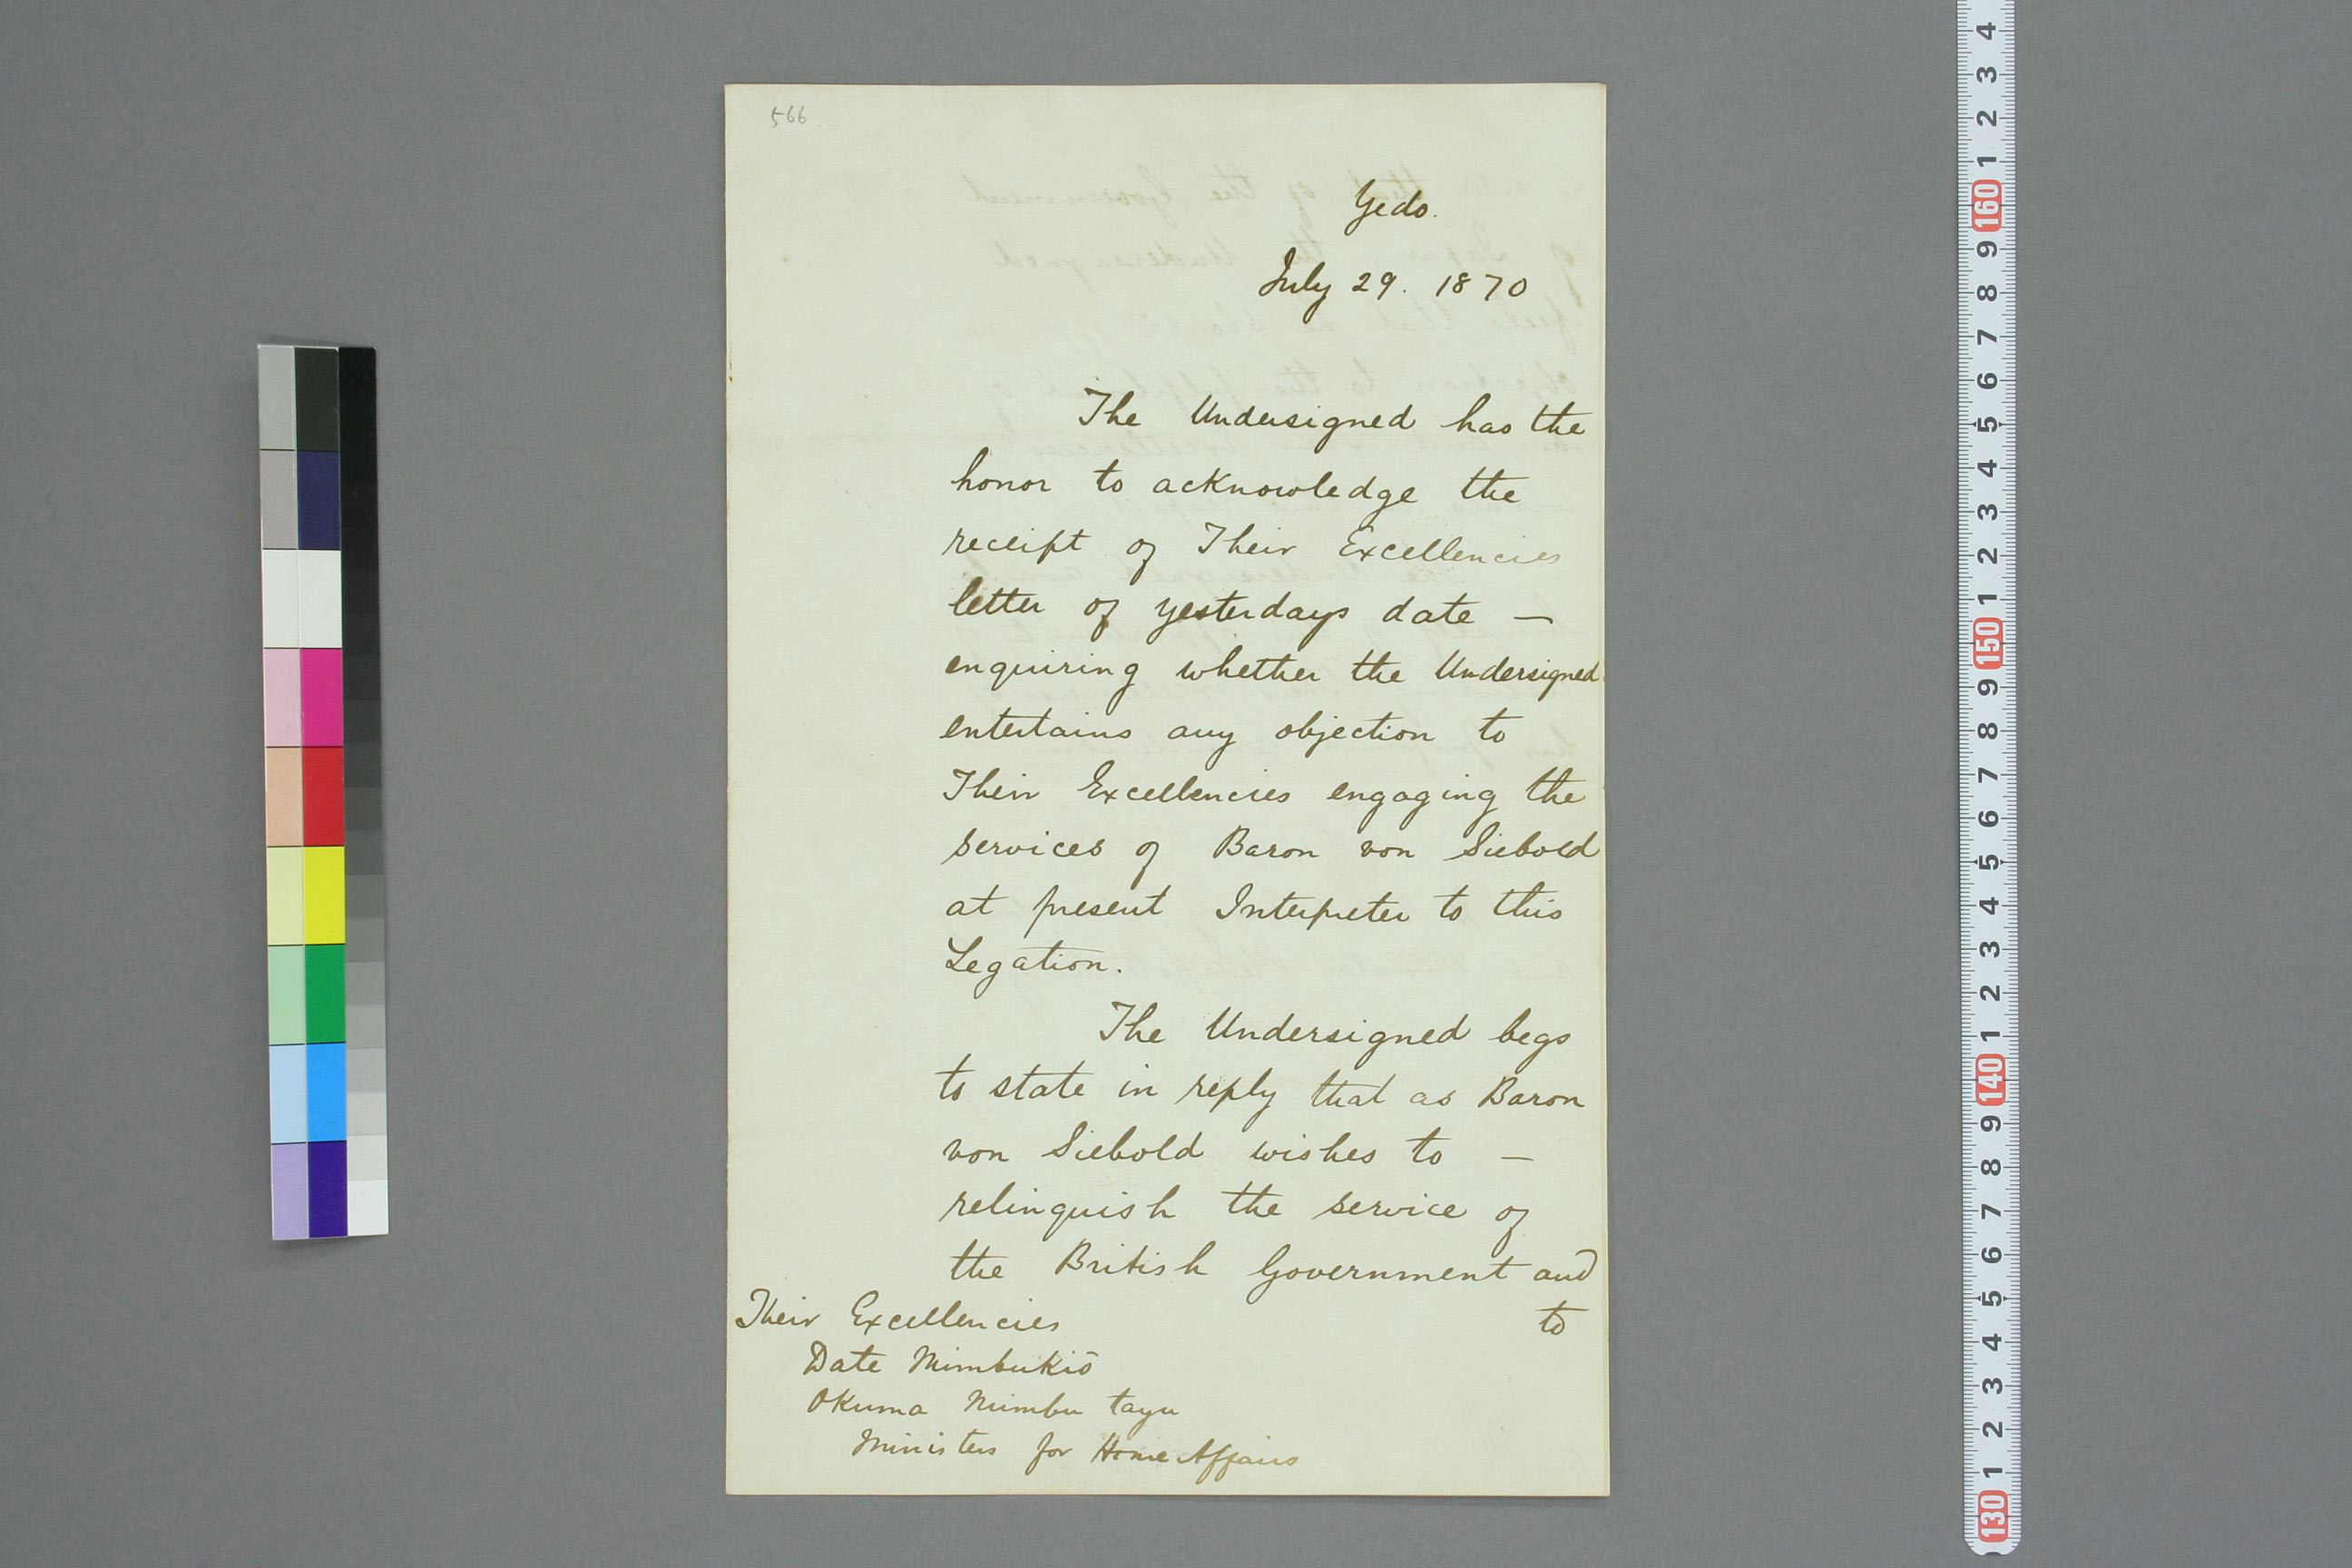 566
Yedo.
July 29. 1870
The Undersigned has the
honor to acknowledge the
receipt of Their Excellencies
letter of yesterdays date —
enquiring whether the Undersigned
entertains any objection to
Their Excellencies engaging the
services of Baron von Siebold
at present Interpreter to this
Legation.
The Undersigned begs
to state in reply that as Baron
von Siebold wishes to —
relinquish the service of
the British Government and
to
Their Excellencies
Date Mimbukiō
Okuma Mimbu tayu
Ministers for Home Affairs
4
3
2
1
160
9
8
7
6
5
4
3
2
1
150
9
8
7
6
5
4
3
2
1
140
9
8
7
6
5
4
3
2
1
130